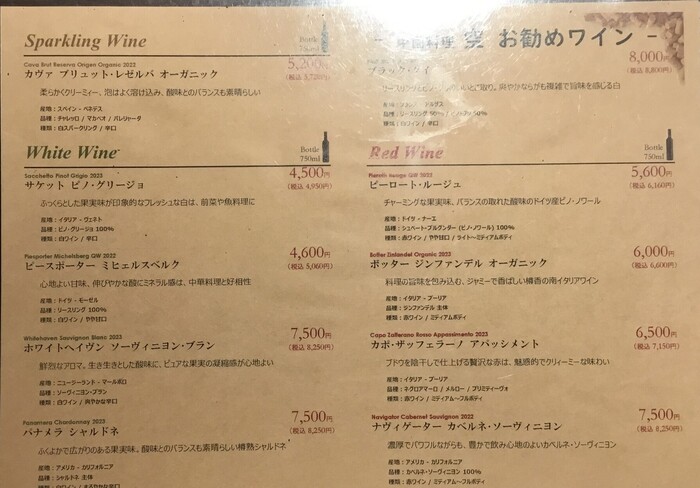 Sparkling Wine
Bottle
Cava Brut Reserva Origen Organic 2022
カヴァ ブリュット・レゼルバ オーガニック
5,200円
(税込 5,720円)
柔らかくクリーミィー、泡はよく溶け込み、酸味とのバランスも素晴らしい
産地：スペイン - ペネデス
品種：チャレッロ / マカベオ / パレリャーダ
種類：白スパークリング / 辛口
White Wine
Bottle
750ml
Sacchetto Pinot Grigio 2023
サケット ピノ・グリージョ
4,500円
(税込 4,950円)
ふっくらとした果実味が印象的なフレッシュな白は、前菜や魚料理に
産地：イタリア - ヴェネト
品種：ピノ・グリージョ 100%
種類：白ワイン / 辛口
Piesporter Michelsberg QW 2022
ピースポーター ミヒェルスベルク
4,600円
(税込 5,060円)
心地よい甘味、伸びやかな酸にミネラル感は、中華料理と好相性
産地：ドイツ - モーゼル
品種：リースリング 100%
種類：白ワイン / やや甘口
Whitehaven Sauvignon Blanc 2023
ホワイトヘイヴン ソーヴィニヨン・ブラン
7,500円
(税込 8,250円)
鮮烈なアロマ。生き生きとした酸味に、ピュアな果実の凝縮感が心地よい
産地：ニュージーランド - マールボロ
品種：ソーヴィニヨン・ブラン
種類：白ワイン / 爽やかな辛口
Panamera Chardonnay 2023
パナメラ シャルドネ
7,500円
(税込 8,250円)
ふくよかで広がりのある果実味。酸味とのバランスも素晴らしい樽熟シャルドネ
産地：アメリカ - カリフォルニア
品種：シャルドネ 主体
種類：白ワイン / まろやかな辛口
お勧めワイン -
8,000円
(税込 8,800円)
爽やかながらも複雑で旨味を感じる白
種類：白ワイン / 辛口
Red Wine
Bottle
750ml
Pieroth Rouge QW 2023
ピーロート・ルージュ
5,600円
(税込 6,160円)
チャーミングな果実味、バランスの取れた酸味のドイツ産ピノ・ノワール
産地：ドイツ - ナーエ
品種：シュペート・ブルグンダー (ピノ・ノワール) 100%
種類：赤ワイン / やや甘口 / ライト〜ミディアムボディ
Botter Zinfandel Organic 2023
ボッター ジンファンデル オーガニック
6,000円
(税込 6,600円)
料理の旨味を包み込む、ジャミーで香ばしい樽香の南イタリアワイン
産地：イタリア - プーリア
品種：ジンファンデル 主体
種類：赤ワイン / ミディアムボディ
Capo Zafferano Rosso Appassimento 2023
カポ・ザッフェラーノ アパッシメント
6,500円
(税込 7,150円)
ブドウを陰干しで仕上げる贅沢な赤は、魅惑的でクリィーミーな味わい
産地：イタリア - プーリア
品種：ネグロアマーロ / メルロー / プリミティーヴォ
種類：赤ワイン / ミディアム〜フルボディ
Navigator Cabernet Sauvignon 2022
ナヴィゲーター カベルネ・ソーヴィニヨン
7,500円
(税込 8,250円)
濃厚でパワフルながらも、豊かで飲み心地のよいカベルネ・ソーヴィニヨン
産地：アメリカ - カリフォルニア
品種：カベルネ・ソーヴィニヨン 100%
種類：赤ワイン / ミディアム〜フルボディ